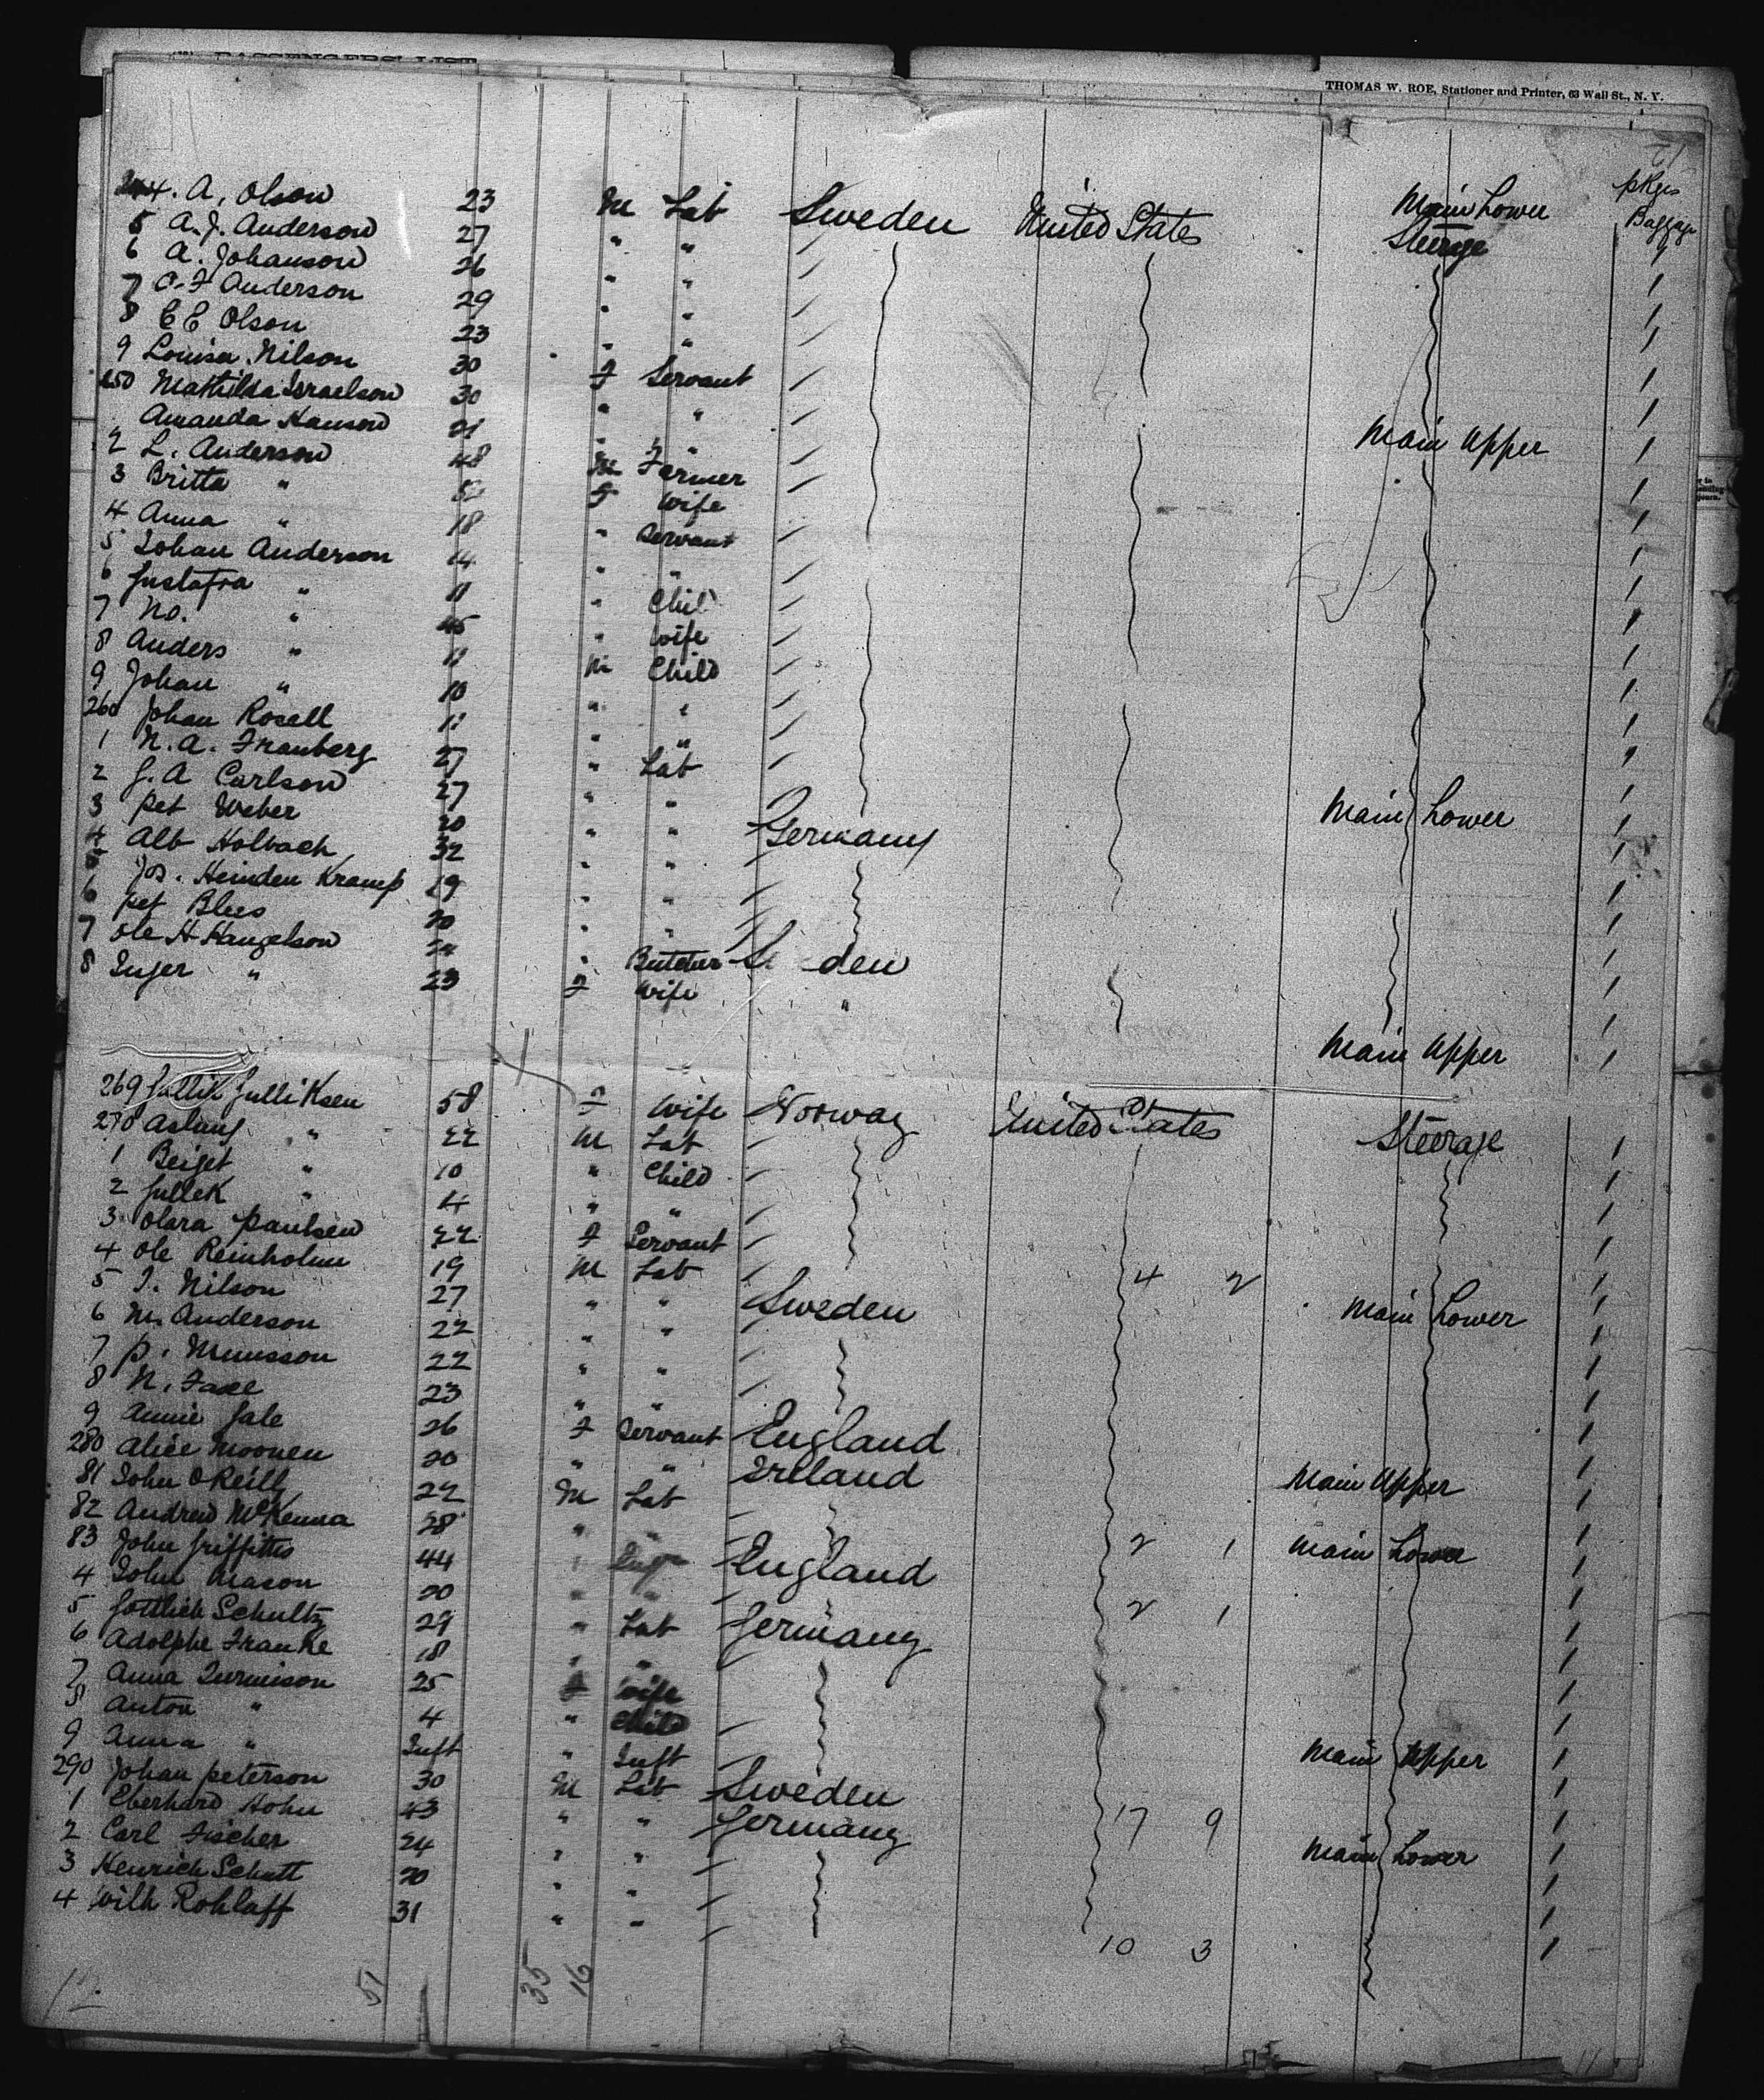 PASSENGERS' LIST
THOMAS W. ROE, Stationer and Printer, 63 Wall St., N. Y.
pkgs Baggage
244. A. Olson 23 M Lab Sweden United States Main Lower Steerage 1
5 A. J. Anderson 27 " " 1
6 A. Johanson 26 " " 1
7 O. F Anderson 29 " " 1
8 C E Olson 23 " " 1
9 Louisa Nilson 30 F Servant 1
250 Mathilda Israelson 30 " " 1
Amanda Hanson 21 " " Main Upper 1
2 L. Anderson 48 M Farmer 1
3 Britta " F Wife 1
4 Anna " 18 " Servant 1
5 Johan Anderson 14 " " 1
6 Gustafva " 11 " Child 1
7 No. " 45 " Wife 1
8 Anders " 11 M Child 1
9 Johan " 10 " " 1
260 Johan Rosell 11 " " 1
1 N. A. Franberg 27 " Lab 1
2 G. A Carlson 27 " " Main Lower 1
3 Pet Weber 20 " " Germany 1
4 Alb Holbach 32 " " 1
5 Jos. Heinden Kramp 19 " " 1
6 Pet Blees 20 " " 1
7 Ole H Haugelson " Butcher Sweden 1
8 Inger " 23 F Wife " 1
Main Upper 1
269 Gullik Gulliksen 58 F Wife Norway United States Steerage 1
270 Aslaug " 22 M Lab 1
1 Beiget " 10 " Child 1
2 Gullek " 4 " " 1
3 Olara Paulsen 22 F Servant 1
4 Ole Reinholm 19 M Lab 4 2 1
5 I. Nilson 27 " " Sweden Main Lower 1
6 M. Anderson 22 " " 1
7 P. Munsson 22 " " 1
8 N. Faxe 23 " " 1
9 Annie Gale 26 F Servant England 1
280 Alice Moonen 20 " " Ireland Main Upper 1
81 John O'Reilly 22 M Lab 1
82 Andrew McKenna 28 " " 2 1 Main Lower 1
83 John Griffitts 44 " England 1
4 John Mason 20 " " 2 1 1
5 Gottlieb Schultz 29 " Lab Germany 1
6 Adolphe Franke 18 " " 1
7 Anna Turmison 25 F Wife 1
8 Anton " 4 " Child 1
9 Anna " Inft " Inft Main Upper 1
290 Johan Peterson 30 M Lab Sweden 1
1 Eberhard Hohn 43 " " Germany 17 9 1
2 Carl Fischer 24 " " Main Lower 1
3 Henrich Schutt 20 " " 1
4 Wilh Rohlaff 31 " " 10 3 1
51 35 16